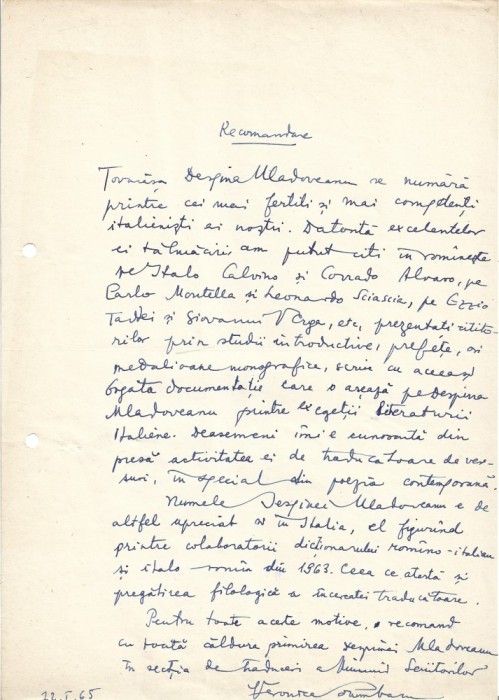 Recomandare
Tovarășa Despina Mladoveanu se numără
printre cei mai fertili și mai competenți
italieniști ai noștri. Datorită excelentelor
ei tălmăciri, am putut citi în românește
pe Italo Calvino și Corrado Alvaro, pe
Carlo Montella și Leonardo Sciascia, pe Ezzio
Taddei și Giovanni Verga, etc, prezentați citito-
rilor prin studii introductive, prefețe, ori
medalioane monografice, scrise cu aceeași
bogată documentație care o așează pe Despina
Mladoveanu printre exegeții literaturii
italiene. Deasemeni îmi e cunoscută din
presă activitatea ei de traducătoare de ver-
suri, în special din poezia contemporană.
Numele Despinei Mladoveanu e de
altfel apreciat și în Italia, el figurând
printre colaboratorii dicționarului româno-italian
și italo-român din 1963. Ceea ce atestă și
pregătirea filologică a încercatei traducătoare.
Pentru toate aceste motive, recomand
cu toată căldura primirea Despinei Mladoveanu
în secția de traduceri a Uniunii Scriitorilor
22.I.65 Veronica Porumbacu